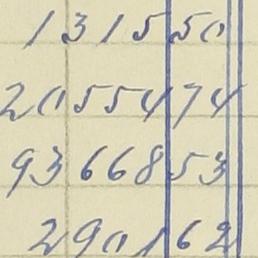 131550
2055474
9366853
290162